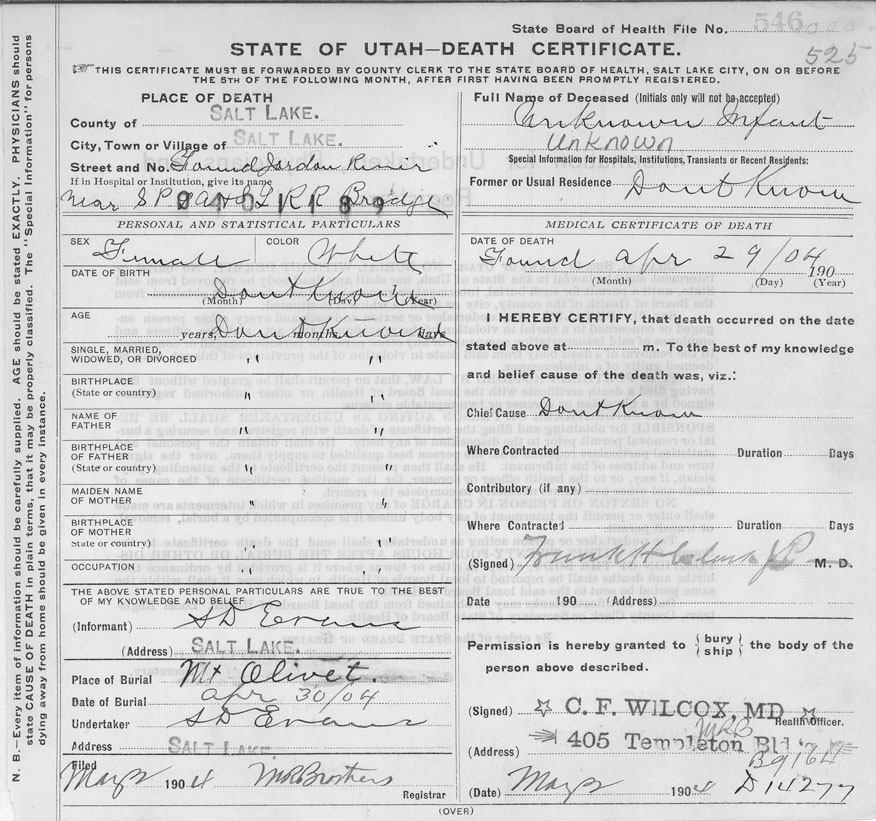 State Board of Health File No. 546
525
STATE OF UTAH—DEATH CERTIFICATE.
THIS CERTIFICATE MUST BE FORWARDED BY COUNTY CLERK TO THE STATE BOARD OF HEALTH, SALT LAKE CITY, ON OR BEFORE
THE 5TH OF THE FOLLOWING MONTH, AFTER FIRST HAVING BEEN PROMPTLY REGISTERED.
N. B.—Every item of information should be carefully supplied. AGE should be stated EXACTLY. PHYSICIANS should
state CAUSE OF DEATH in plain terms, that it may be properly classified. The "Special Information" for persons
dying away from home should be given in every instance.
PLACE OF DEATH
County of SALT LAKE.
City, Town or Village of SALT LAKE.
Street and No. Found Jordan River
If in Hospital or Institution, give its name
near S P L A & S L R R Bridge
PERSONAL AND STATISTICAL PARTICULARS
SEX Female COLOR White
DATE OF BIRTH Dont Know
(Month) (Day) (Year)
AGE years, Dont Know months, days
SINGLE, MARRIED,
WIDOWED, OR DIVORCED " "
BIRTHPLACE
(State or country) " "
NAME OF
FATHER " "
BIRTHPLACE
OF FATHER
(State or country) " "
MAIDEN NAME
OF MOTHER " "
BIRTHPLACE
OF MOTHER
State or country) " "
OCCUPATION " "
THE ABOVE STATED PERSONAL PARTICULARS ARE TRUE TO THE BEST
OF MY KNOWLEDGE AND BELIEF
(Informant) S D Evans
(Address) SALT LAKE.
Place of Burial Mt Olivet.
Date of Burial Apr 30/04
Undertaker S D Evans
Address SALT LAKE
Filed
May 2 1904 M R Brothers
Registrar
Full Name of Deceased (Initials only will not be accepted)
Unknown Infant
Unknown
Special Information for Hospitals, Institutions, Transients or Recent Residents:
Former or Usual Residence Dont Know
MEDICAL CERTIFICATE OF DEATH
DATE OF DEATH
Found Apr 29/04 190
(Month) (Day) (Year)
I HEREBY CERTIFY, that death occurred on the date
stated above at m. To the best of my knowledge
and belief cause of the death was, viz.:
Chief Cause Dont Know
Where Contracted Duration Days
Contributory (if any)
Where Contracted Duration Days
(Signed) Frank H M. D.
Date 190 (Address)
Permission is hereby granted to { bury ship } the body of the
person above described.
(Signed) C. F. WILCOX, MD
Health Officer.
MRB
(Address) 405 Templeton Bld.
B9164
(Date) May 2 1904 D14277
(OVER)